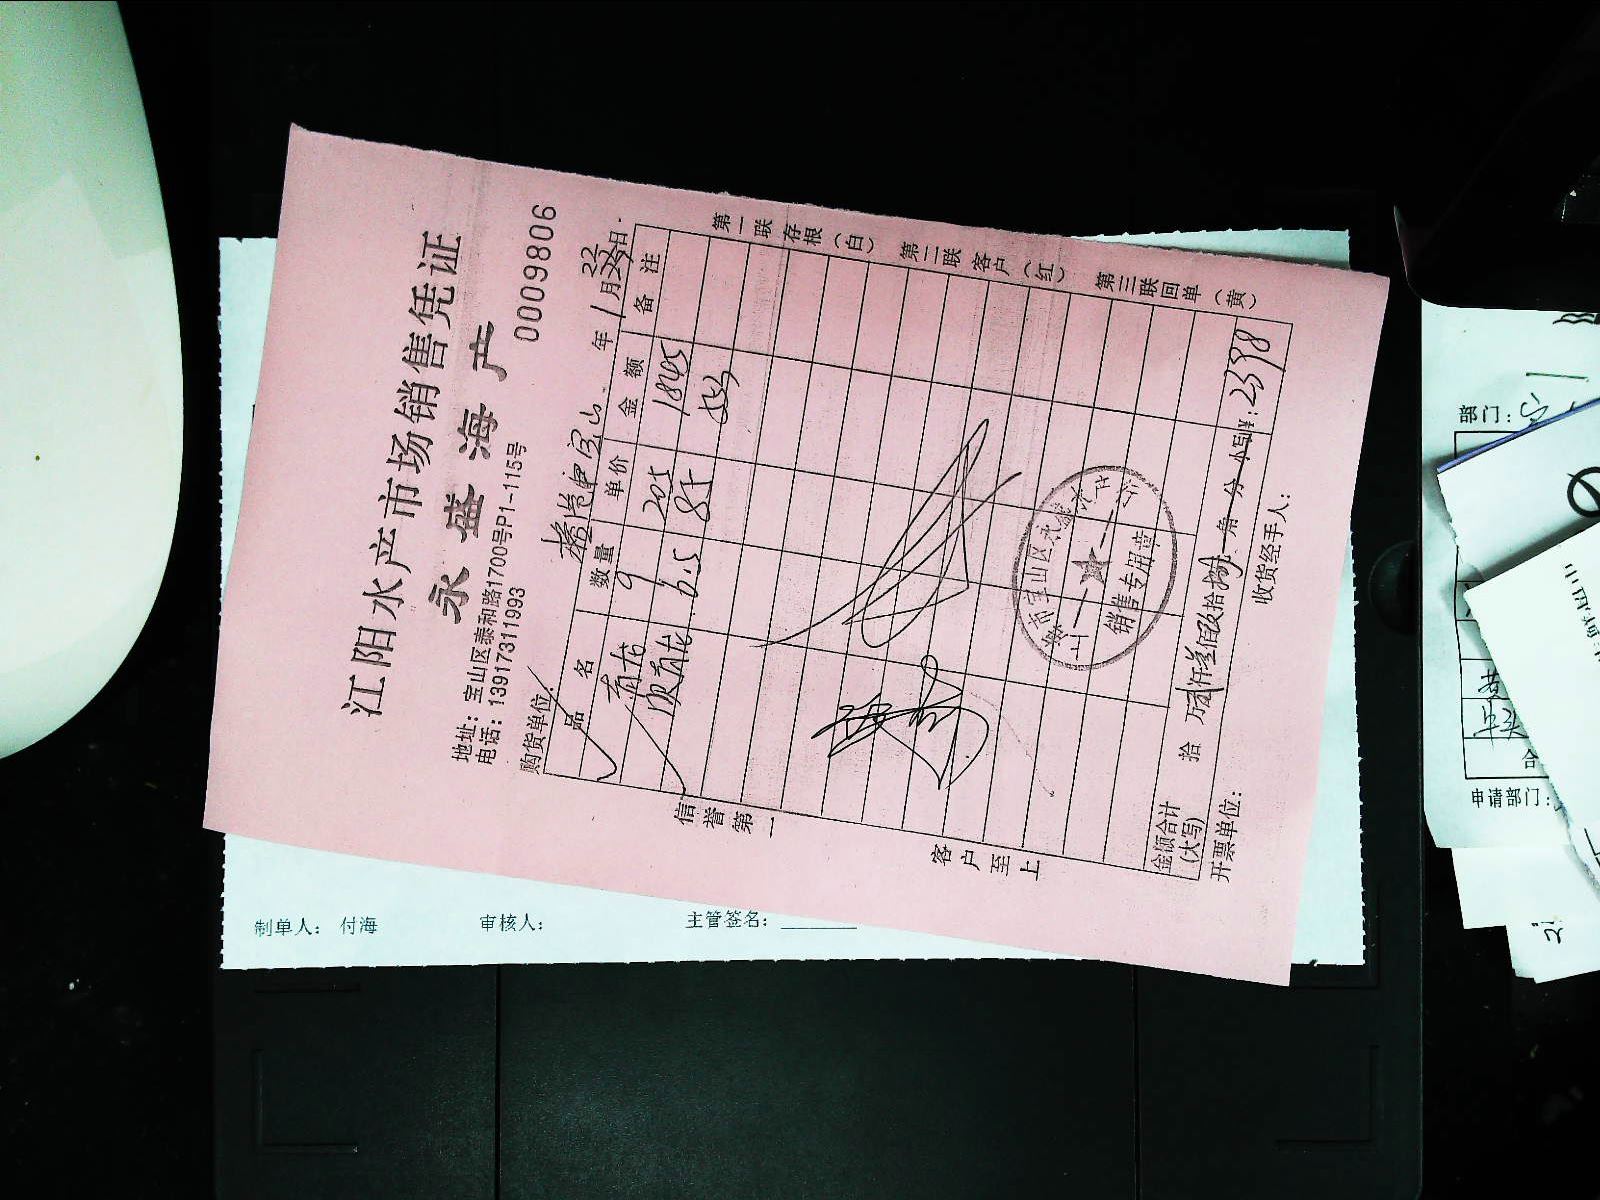 江阳水产市场销售凭证
永盛海产
0009806
地址：宝山区泰和路1700号P1-115号
电话：13917311993
购货单位： 宝山 年1月22日
品名 数量 单价 金额 备注
9 205 1845
6.5 85 553
金额合计（大写） 拾 万贰仟叁佰 拾捌元 角 分 小写¥：2398
开票单位： 收货经手人：
信誉第一
客户至上
第一联存根（白） 第二联客户（红） 第三联回单（黄）
上海市宝山区永盛海产行
销售专用章
制单人： 付海 审核人： 主管签名：
部门：
合
申请部门：